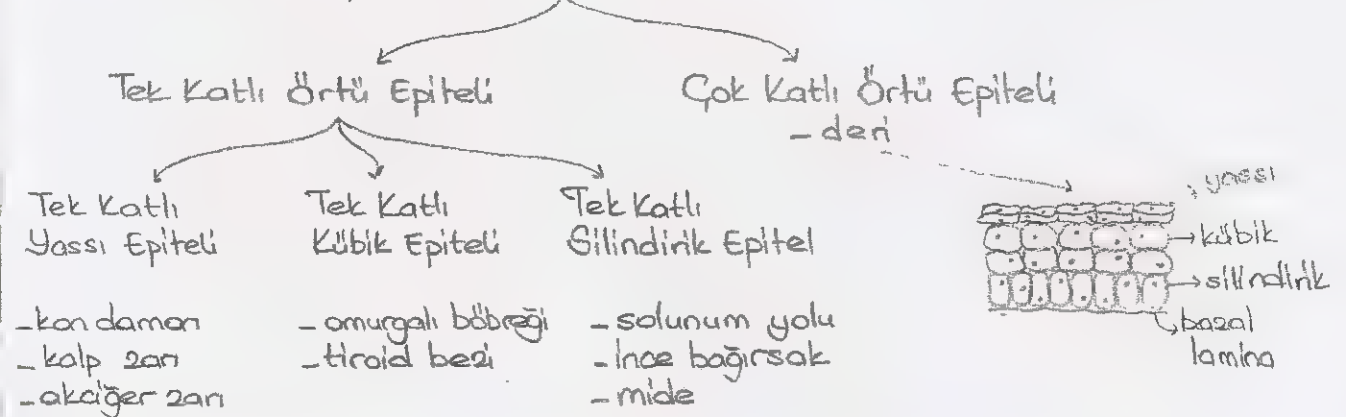 Tek Katlı Örtü Epiteli
Çok Katlı Örtü Epiteli
- deri
Tek Katlı
Yassı Epiteli
- kan damarı
- kalp zarı
- akciğer zarı
Tek Katlı
Kübik Epiteli
- omurgalı böbreği
- tiroid bezi
Tek Katlı
Silindirik Epitel
- solunum yolu
- ince bağırsak
- mide
yassı
kübik
silindirik
bazal
lamina